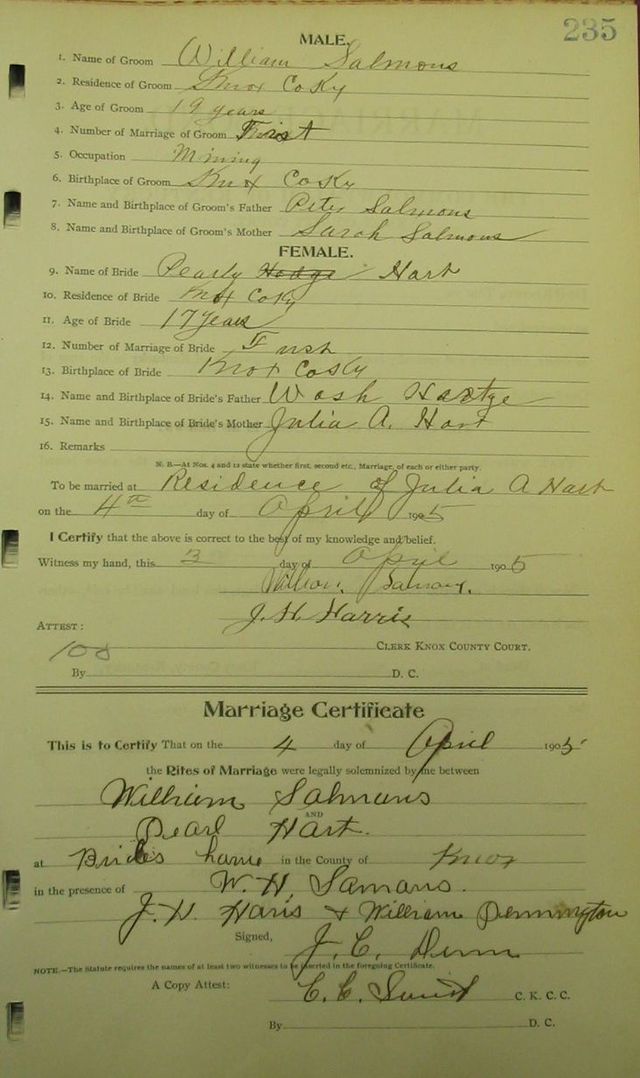 235
MALE.
1. Name of Groom William Salmons
2. Residence of Groom Knox Co Ky
3. Age of Groom 19 years
4. Number of Marriage of Groom First
5. Occupation Mining
6. Birthplace of Groom Knox Co Ky
7. Name and Birthplace of Groom's Father Peter Salmons
8. Name and Birthplace of Groom's Mother Sarah Salmons
FEMALE.
9. Name of Bride Pearly Hodge Hart
10. Residence of Bride Knox Co Ky
11. Age of Bride 17 years
12. Number of Marriage of Bride First
13. Birthplace of Bride Knox Co Ky
14. Name and Birthplace of Bride's Father Wash
15. Name and Birthplace of Bride's Mother Julia A. Hart
16. Remarks
N. B.—At Nos. 4 and 12 state whether first, second etc., Marriage, of each or either party.
To be married at Residence of Julia A Hart
on the 4th day of April 1905
I Certify that the above is correct to the best of my knowledge and belief.
Witness my hand, this 3 day of April 1905
William Salmons.
J. H. Harris
ATTEST:
100 CLERK KNOX COUNTY COURT.
By D. C.
Marriage Certificate
This is to Certify That on the 4 day of April 1905
the Rites of Marriage were legally solemnized by me between
William Salmons
AND
Pearl Hart.
at Brides home in the County of Knox
in the presence of W. H. Samans.
J. H. Haris & William Pennington
Signed, J. C.
NOTE.—The Statute requires the names of at least two witnesses to be inserted in the foregoing Certificate.
A Copy Attest: C. C. C. K. C. C.
By D. C.